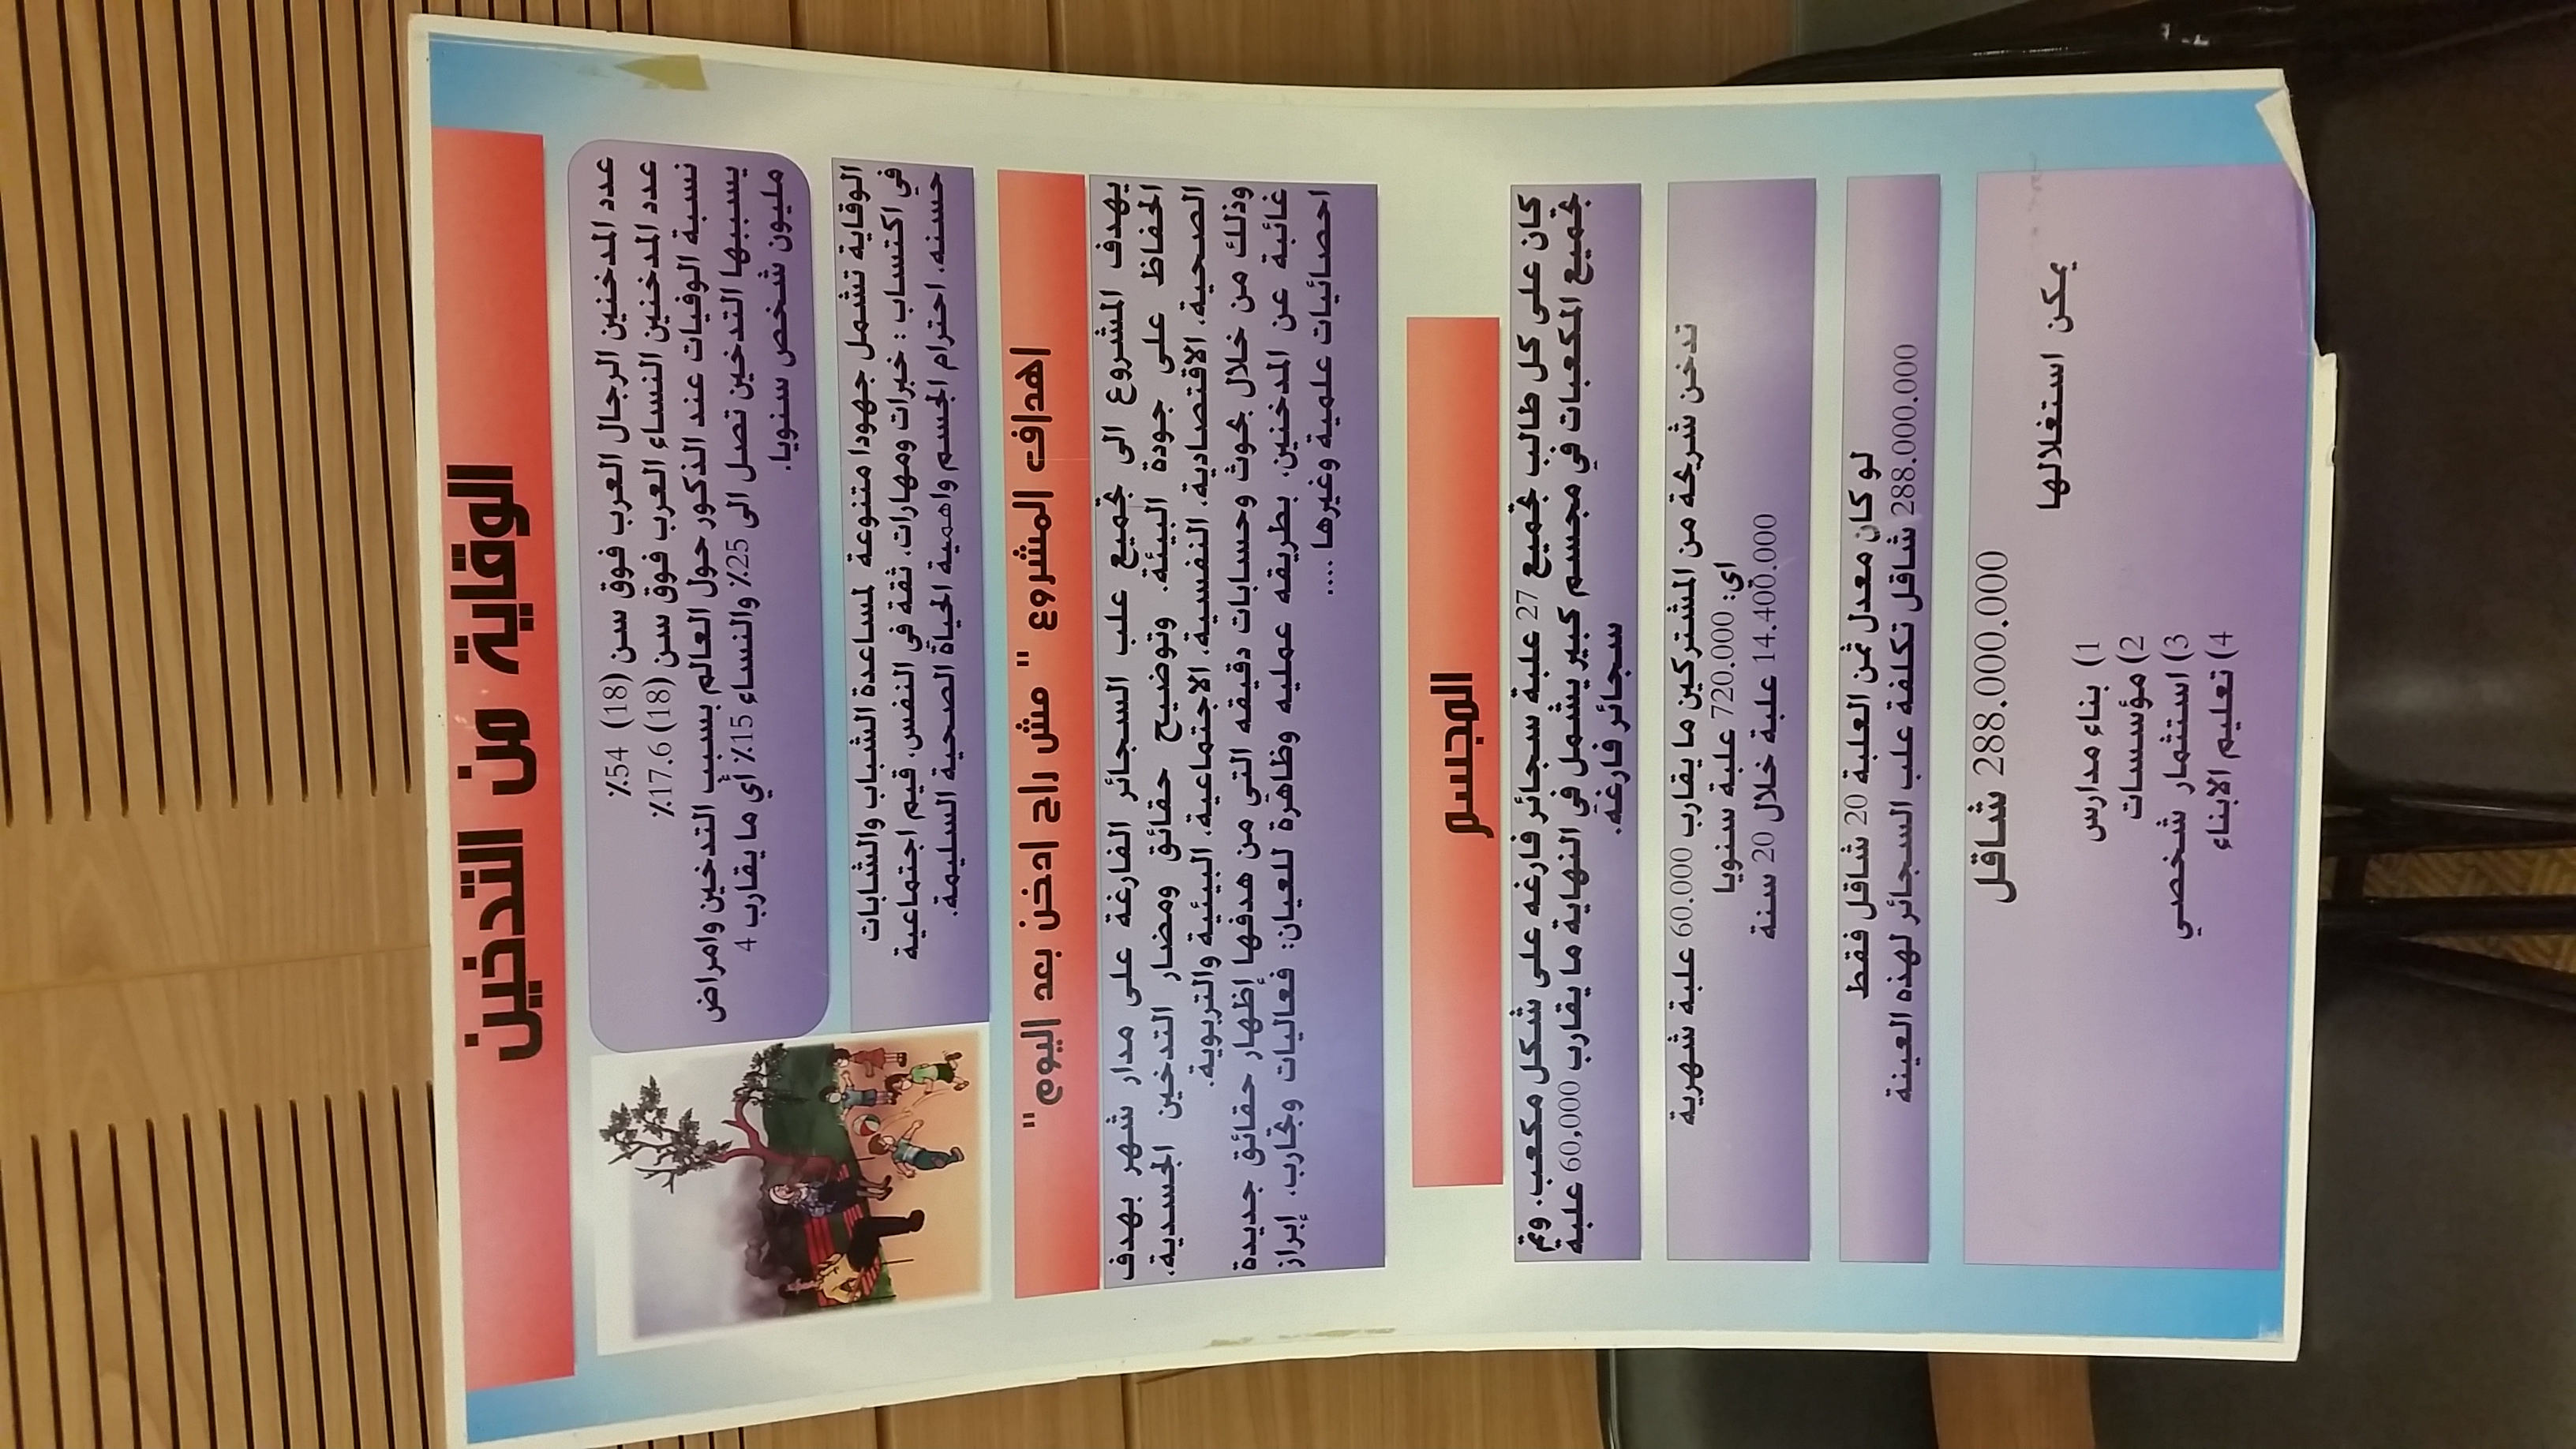 الوقاية من التدخين
عدد المدخنين الرجال العرب فوق سن (18) 54٪
عدد المدخنين النساء العرب فوق سن (18) 17.6٪
نسبة الوفيات عند الذكور حول العالم بسبب التدخين وامراض
يسببها التدخين تصل الى 25٪ والنساء 15٪ أي ما يقارب 4
مليون شخص سنويا.
الوقاية تشمل جهودا متنوعة لمساعدة الشباب والشابات
في اكتساب : خبرات ومهارات، ثقة في النفس، قيم اجتماعية
حسنه، احترام الجسم واهمية الحياة الصحية السليمة.
اهداف المشروع " مش راح ادخن بعد اليوم"
يهدف المشروع الى تجميع علب السجائر الفارغة على مدار شهر بهدف
الحفاظ على جودة البيئة. وتوضيح حقائق ومضار التدخين الجسدية،
الصحية، الاقتصادية، النفسية، الاجتماعية، البيئية والتربوية.
وذلك من خلال بحوث وحسابات دقيقه التي من هدفها إظهار حقائق جديدة
غائبة عن المدخنين، بطريقه عمليه وظاهرة للعيان: فعاليات وتجارب، إبراز
احصائيات علمية وغيرها ....
المجسم
كان على كل طالب تجميع 27 علبة سجائر فارغه على شكل مكعب. وتم
تجميع المكعبات في مجسم كبير يشمل في النهاية ما يقارب 60,000 علبة
سجائر فارغة.
تدخن شريحة من المشتركين ما يقارب 60.000 علبة شهرية
اي: 720.000 علبة سنويا
14.400.000 علبة خلال 20 سنة
لو كان معدل ثمن العلبة 20 شاقل فقط
288.000.000 شاقل تكلفة علب السجائر لهذه العينة
288.000.000 شاقل
يمكن استغلالها
1) بناء مدارس
2) مؤسسات
3) استثمار شخصي
4) تعليم الابناء